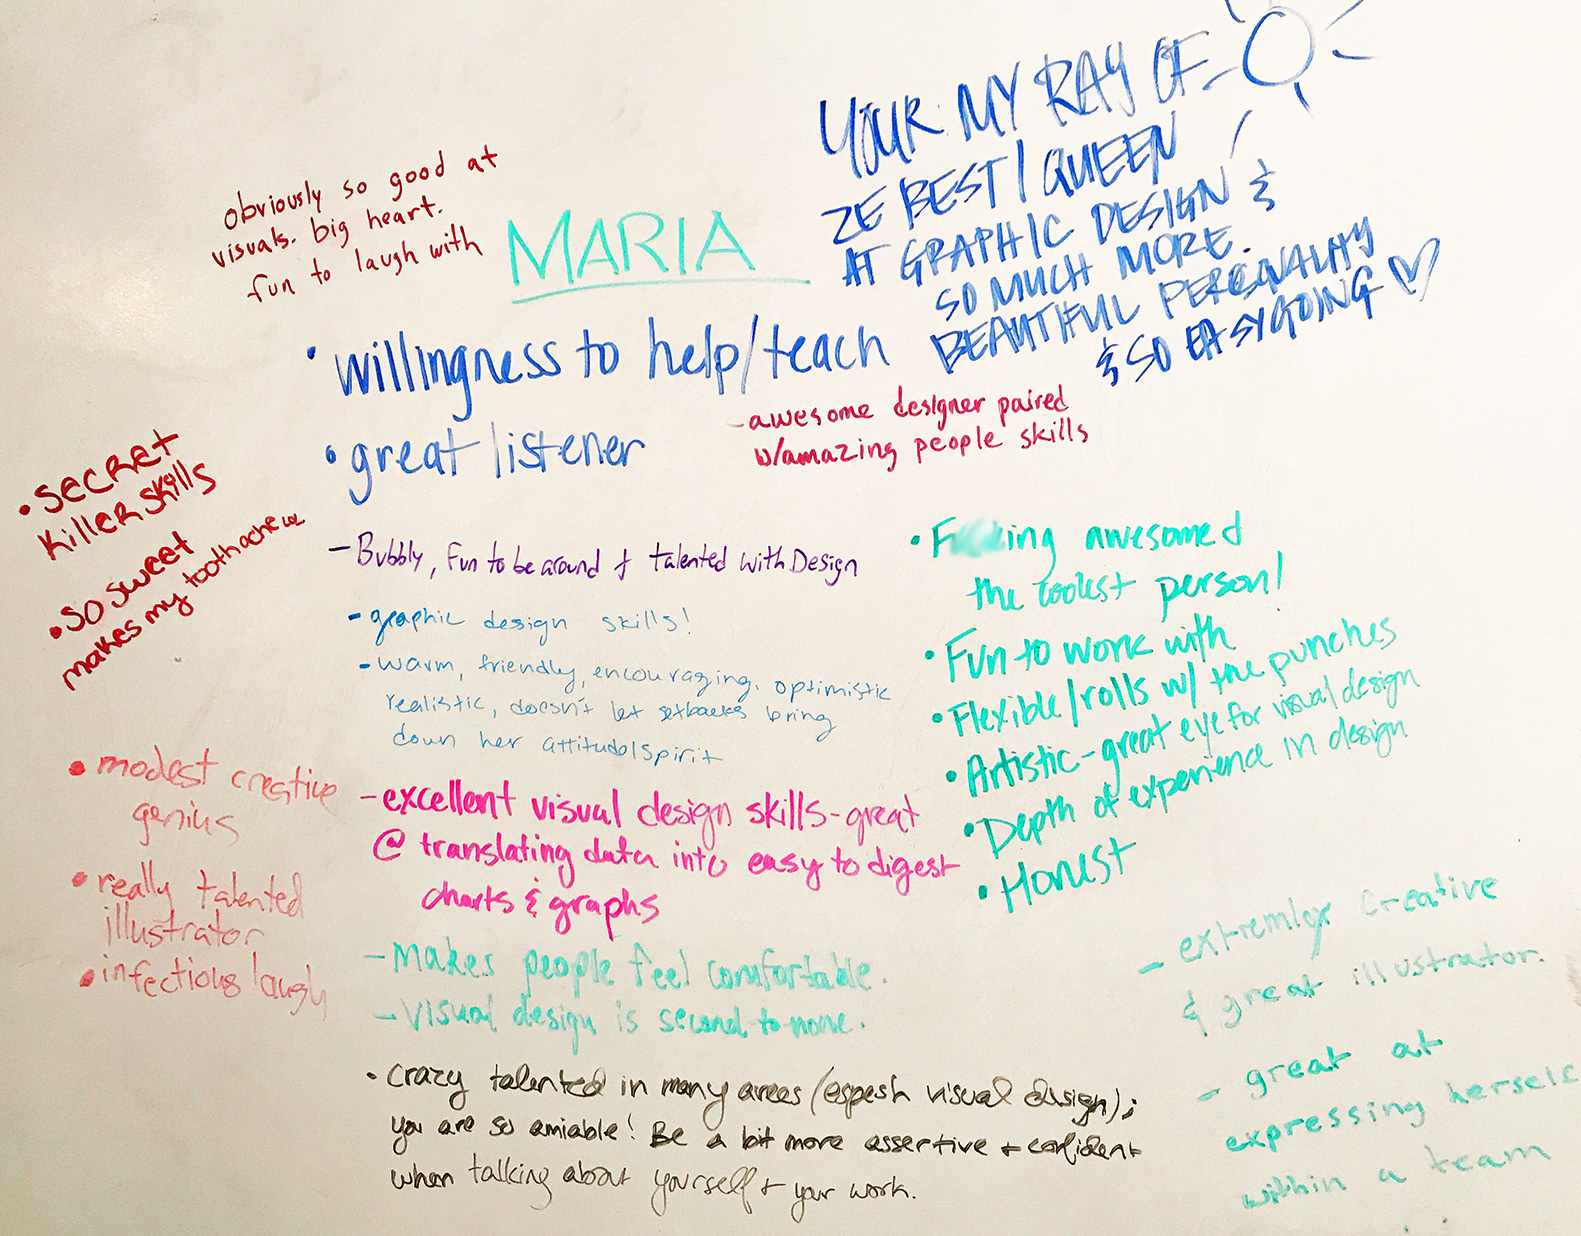 YOUR MY RAY OF
ZE BEST / QUEEN
AT GRAPHIC DESIGN &
SO MUCH MORE.
BEAUTIFUL PERSONALITY
& SO EASYGOING
obviously so good at
visuals. big heart.
fun to laugh with
MARIA
• willingness to help/teach
• great listener
- awesome designer paired
w/amazing people skills
• SECRET
KILLER SKILLS
• SO SWEET
makes my tooth ache
- Bubbly, Fun to be around + talented with Design
- graphic design skills!
- warm, friendly, encouraging, optimistic
realistic, doesn't let setbacks bring
down her attitude/spirit
• F ing awesomed
the coolest person!
• Fun to work with
• Flexible/rolls w/ the punches
• Artistic - great eye for visual design
• Depth of experience in design
• Honest
• modest creative
genius
• really talented
illustrator
• infectious laugh
- excellent visual design skills - great
@ translating data into easy to digest
charts & graphs
- Makes people feel comfortable.
- Visual design is second-to-none.
- extremley creative
& great illustrator.
- great at
expressing herself
within a team
• Crazy talented in many areas (espesh visual design);
you are so amiable! Be a bit more assertive + confident
when talking about yourself + your work.